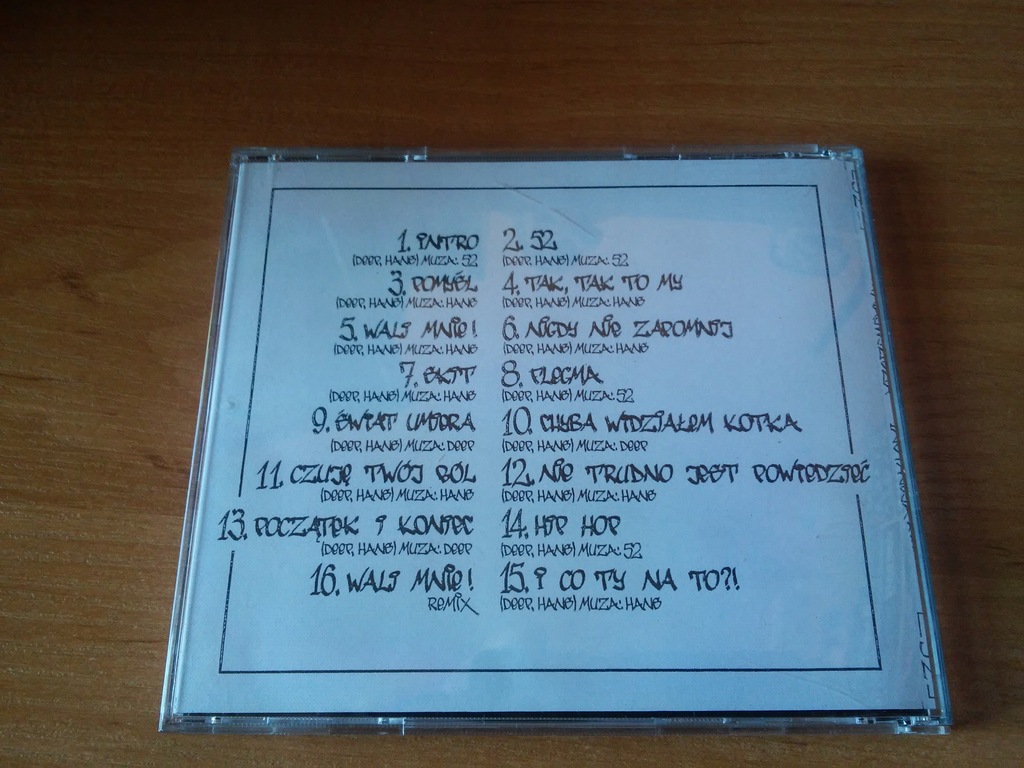 1. INTRO
(DEEP, HANS) MUZA: 52
2. 52
(DEEP, HANS) MUZA: 52
3. POMYŚL
(DEEP, HANS) MUZA: HANS
4. TAK, TAK TO MY
(DEEP, HANS) MUZA: HANS
5. WALI MNIE!
(DEEP, HANS) MUZA: HANS
6. NIGDY NIE ZAPOMNIJ
(DEEP, HANS) MUZA: HANS
7. SKIT
(DEEP, HANS) MUZA: HANS
8. FLEGMA
(DEEP, HANS) MUZA: 52
9. ŚWIAT UMIERA
(DEEP, HANS) MUZA: DEEP
10. CHYBA WIDZIAŁEM KOTKA
(DEEP, HANS) MUZA: DEEP
11. CZUJĘ TWÓJ BÓL
(DEEP, HANS) MUZA: HANS
12. NIE TRUDNO JEST POWIEDZIEĆ
(DEEP, HANS) MUZA: HANS
13. POCZĄTEK I KONIEC
(DEEP, HANS) MUZA: DEEP
14. HIP HOP
(DEEP, HANS) MUZA: 52
16. WALI MNIE!
REMIX
15. I CO TY NA TO?!
(DEEP, HANS) MUZA: HANS